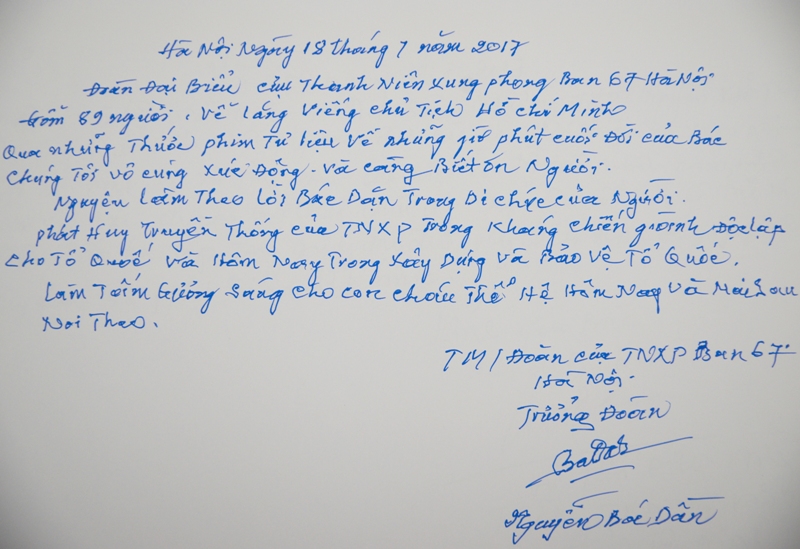 Hà Nội Ngày 18 tháng 7 năm 2017
Đoàn Đại Biểu của Thanh Niên Xung phong Ban 67 Hà Nội
Gồm 89 người. Về lăng Viếng chủ Tịch Hồ Chí Minh
Qua những Thước phim Tư liệu Về những giờ phút cuối Đời của Bác
Chúng Tôi vô cùng Xúc Động. và càng Biết ơn Người.
Nguyện làm Theo lời Bác Dặn Trong Di chúc của Người.
phát Huy Truyền Thống của TNXP Trong Kháng chiến giành Độc lập
Cho Tổ Quốc và Hôm Nay Trong Xây Dựng và Bảo Vệ Tổ Quốc.
Làm Tấm Gương Sáng cho con cháu Thế Hệ Hôm Nay và Mai Sau
Noi Theo.
TM/Đoàn của TNXP Ban 67
Hà Nội.
Trưởng Đoàn
Nguyễn Bá Dần